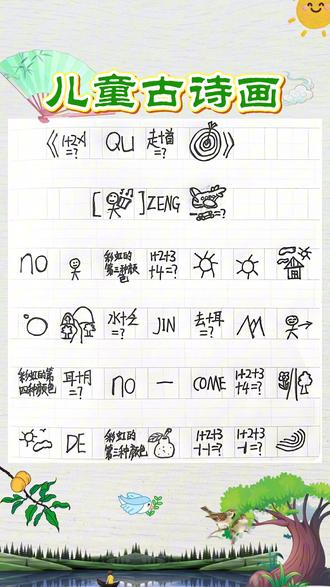 儿童古诗画
《1+2×1=? QU 走+首=? 》
[ ] ZENG =?
no 彩虹的第三种颜色 1+2+3+4=?
水+乏=? JIN 去+耳=?
彩虹的第四种颜色 耳+月=? no 一 COME 1+2+3+4=?
DE 彩虹的第三种颜色 1+2+3-1-1=? 1+2+3-1=?